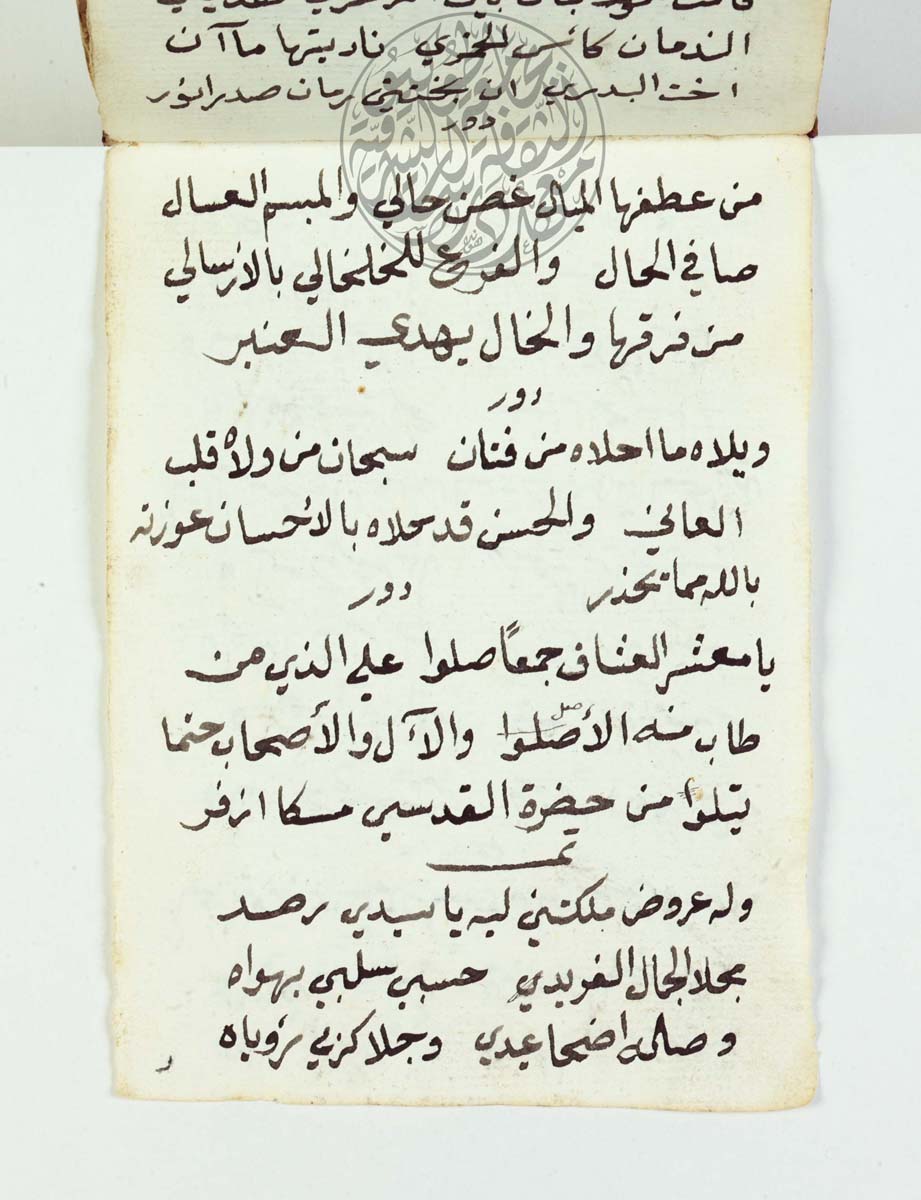 الندمان كاس الخمري ناديتها ماآن
اخت البدري ان بختيني رمان صدر
دور
من عطفها الميال غصن حالي والمبسم العسال
صافي الحال والفرع للخلخالي بالارسالي
من فرقها والخال يهدي العنبر
دور
ويلاه ما احلاه من فتان سبحان من ولاه قلب
العاني والحسن قد حلاه بالاحسان عوزته
بالله مما تحذر دور
يا معشر العشاق جمعاً صلوا علي الذي من
طاب منه الأصلوا والآل والأصحاب حتما
صل
يتلوا من حضرة القدسي مسكا ازفر
تمت
وله عروض ملكتني ليه يا سيدي رصد
بحلا الجمال الفريدي حسبي سلبي بهواه
وصاله اضحا عيدي وجلا كربي رؤياه